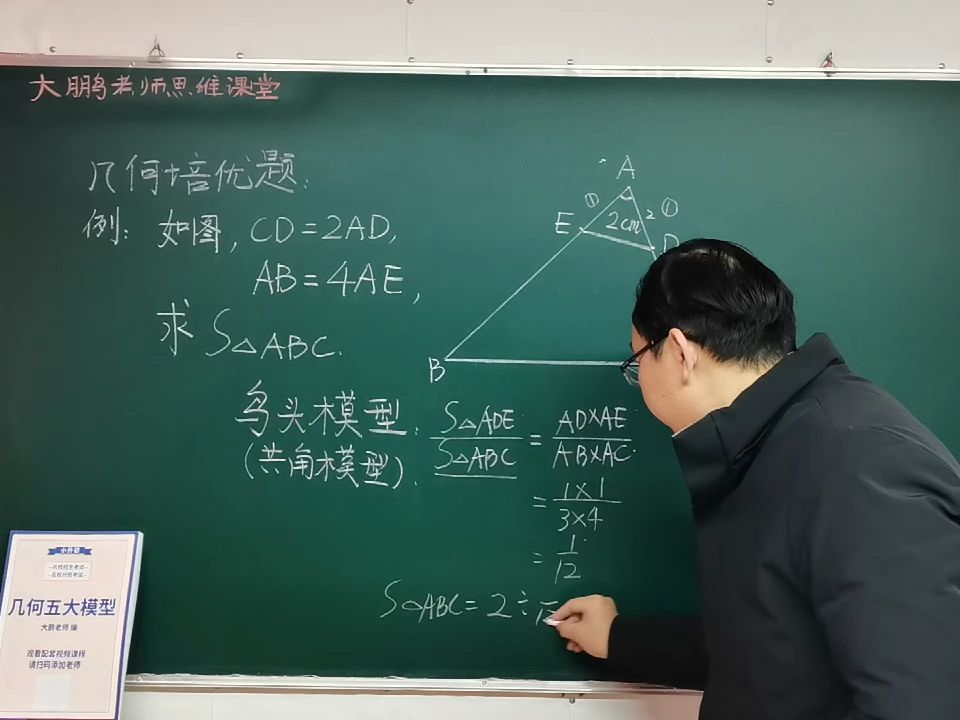 大鹏老师思维课堂
几何培优题:
例: 如图, CD=2AD,
AB=4AE,
求 S△ABC.
A
① 2 ①
E 2cm
B
鸟头模型: S△ADE/S△ABC = AD×AE/AB×AC
(共角模型).
= 1×1/3×4
= 1/12
S△ABC = 2÷
小升初
名校招生考试
名校分班考试
几何五大模型
大鹏老师 编
观看配套视频课程
请扫码添加老师